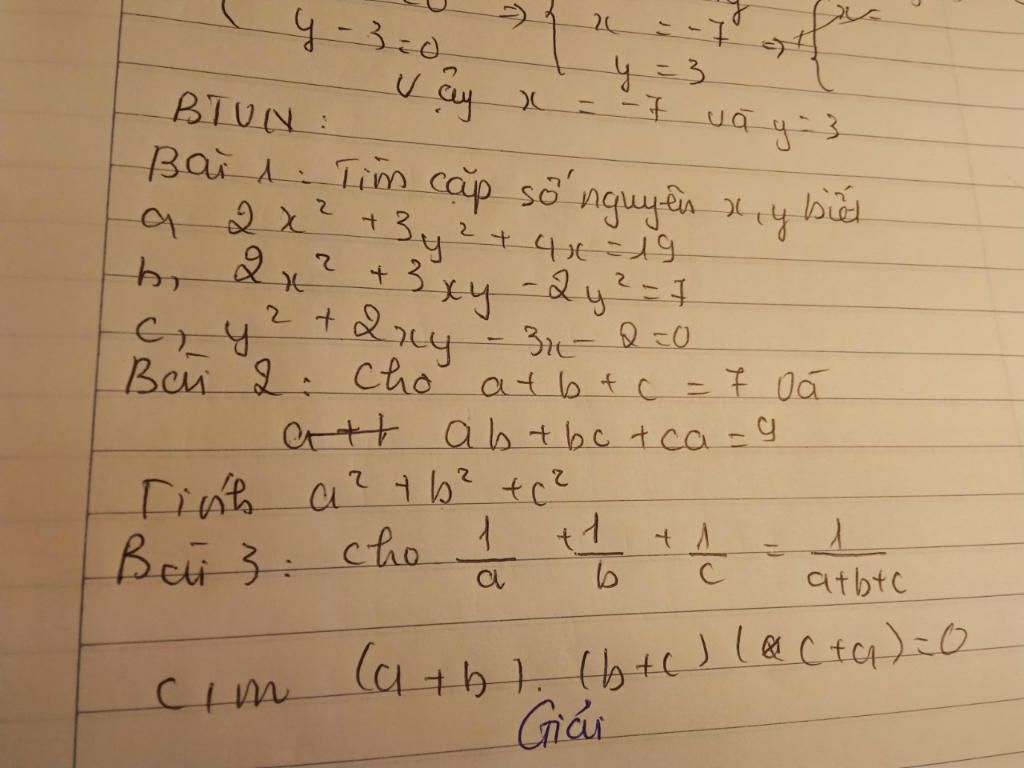 y - 3 = 0 => { x = -7 => { x =
y = 3
Vậy x = -7 và y = 3
BTVN :
Bài 1 : Tìm cặp số nguyên x, y biết
a, 2x² + 3y² + 4x = 19
b, 2x² + 3xy - 2y² = 7
c, y² + 2xy - 3x - 2 = 0
Bài 2 : Cho a + b + c = 7 và
ab + bc + ca = 9
Tính a² + b² + c²
Bài 3 : Cho 1/a + 1/b + 1/c = 1/(a+b+c)
C/m (a + b). (b + c) (c + a) = 0
Giải